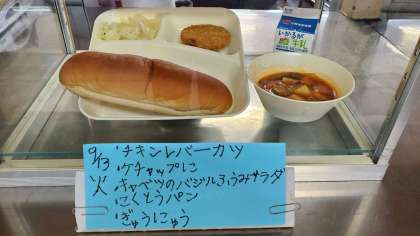 いかるが
牛乳
9/3 チキンレバーカツ
火 ケチャップに
キャベツのバジルふうみサラダ
こくとうパン
ぎゅうにゅう